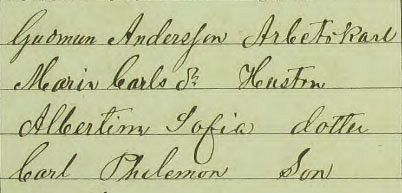 Gudmun Andersson Arbetskarl
Maria Carls Dr Hustru
Albertina Sofia dotter
Carl Philemon Son